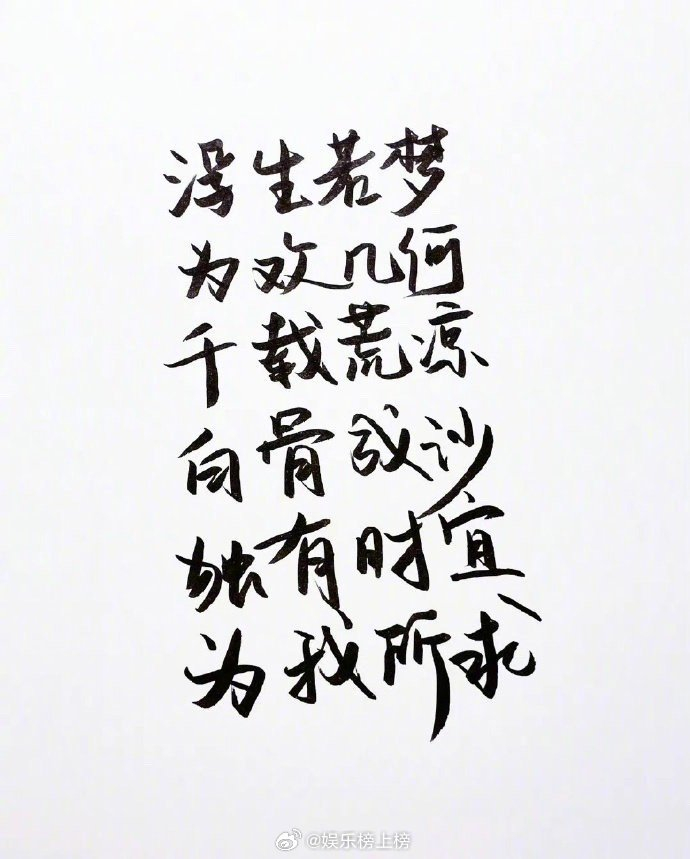 浮生若梦
为欢几何
千载荒凉
白骨成沙
独有时宜
为我所求
@娱乐榜上榜